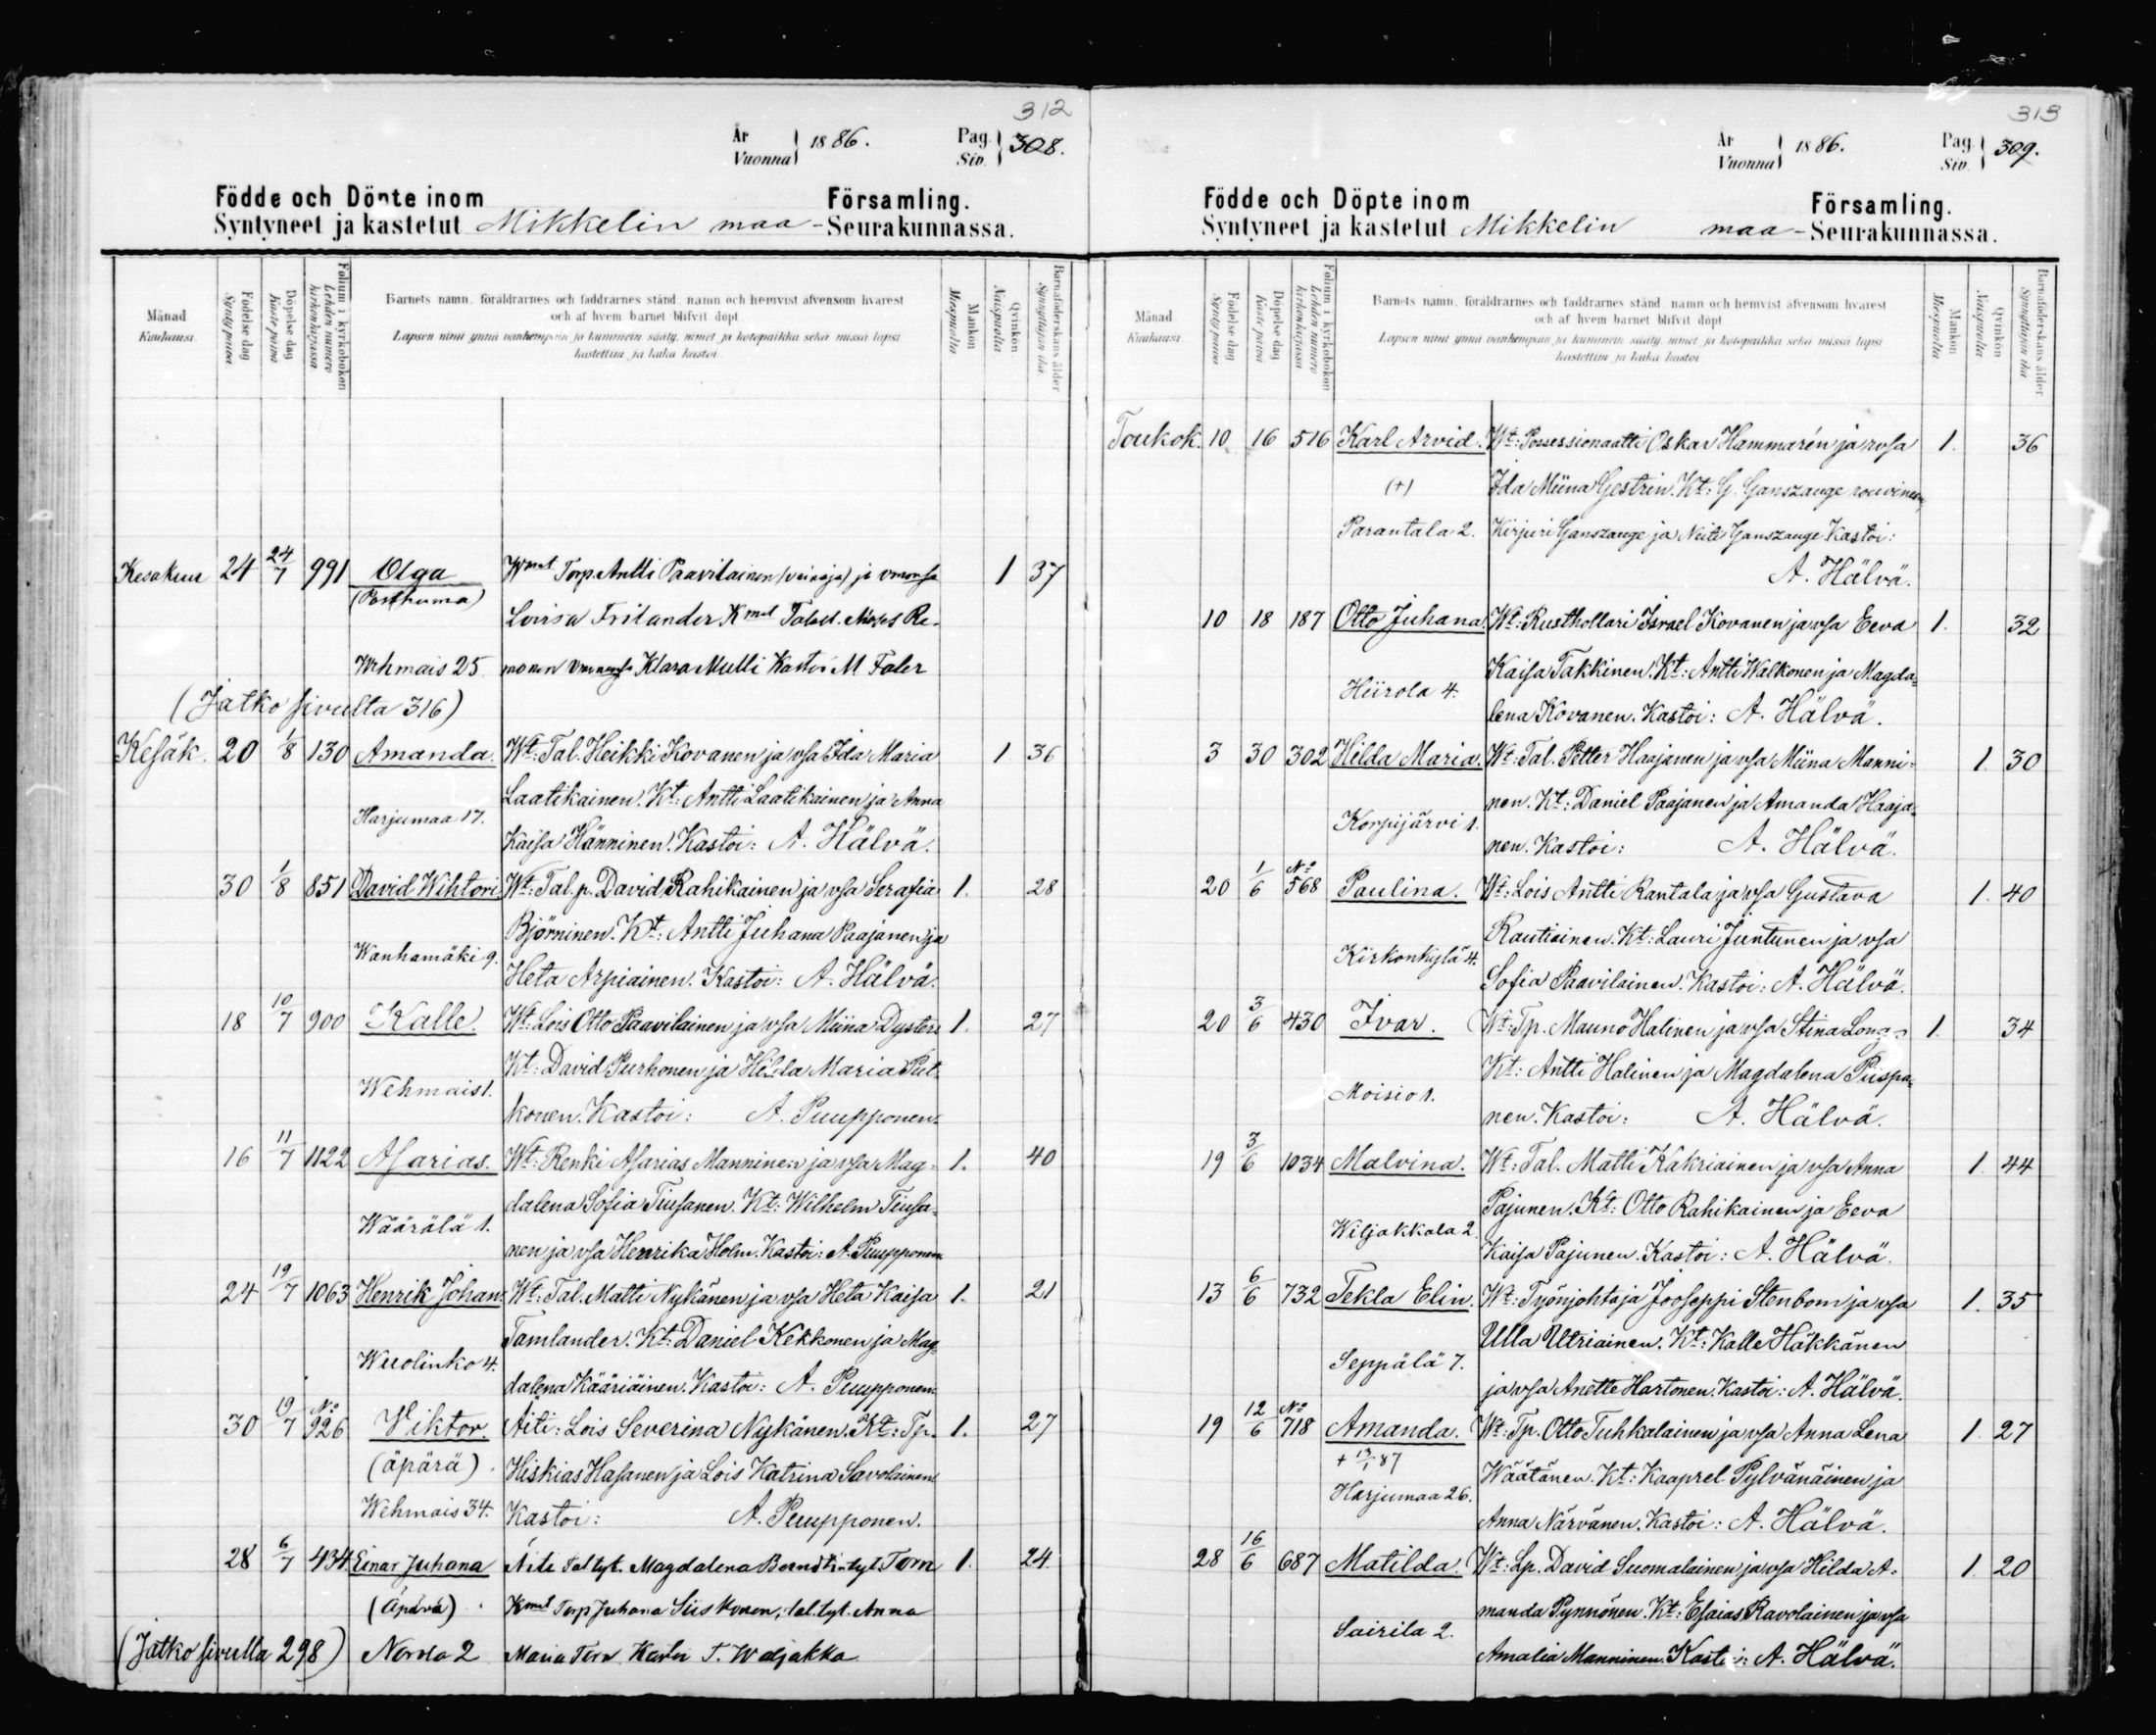 312
År
Vuonna 1886.
Pag.
Siv. 308.
Födde och Döpte inom Församling.
Syntyneet ja kastetut Mikkelin maa-Seurakunnassa.
Månad
Kuukausi
Födelse dag
Synty päivä
Döpelse dag
Kaste päivä
Folium i kyrkoboken
Lehden numero kirkonkirjassa
Barnets namn, föräldrarnes och faddrarnes stånd, namn och hemvist äfvensom hvarest
och af hvem barnet blifvit döpt
Lapsen nimi ynnä vanhempain ja kummein sääty, nimet ja kotopaikka sekä missä lapsi
kastettiin ja kuka kastoi
Mankön
Miespuolia
Qvinkön
Naispuolia
Barnaföderskans ålder
Synnyttäjän ikä
Kesäkuu 24 24/7 991 Olga Wmat Torp. Antti Paavilainen (vainaja) ja vmonsa 1 37
(Posthuma) Lovisa Fritander Kmat Taloll. Moses Re-
Wehmais 25 monen Klara Mulli Kastoi M Faler
(Jatko sivulta 316)
Kesäk. 20 1/8 130 Amanda. Wt: Tal. Heikki Kovanen ja vsa Ida Maria 1 36
Laatikainen. Kt: Antti Laatikainen ja Anna
Harjumaa 17. Kaisa Hänninen. Kastoi: A. Hälvä.
30 1/8 851 David Wihtori. Wt: Tal. p. David Rahikainen ja vsa Serafia 1. 28
Björninen. Kt: Antti Juhana Paajanen ja
Wanhamäki 9. Heta Arpiainen. Kastoi: A. Hälvä.
18 10/7 900 Kalle. Wt: Lois Otto Paavilainen ja vsa Miina Dyster. 1. 27
Kt: David Purhonen ja Hilda Maria Pul-
Wehmais 1. konen. Kastoi: A. Puupponen.
16 11/7 1122 Asarias. Wt: Renki Asarias Manninen ja vsa Mag- 1. 40
dalena Sofia Tiusanen. Kt: Wilhelm Tiusa-
Wäärälä 1. nen ja vsa Henrika Holm. Kastoi: A. Puupponen
24 19/7 1063 Henrik Johan. Wt: Tal. Matti Nykänen ja vsa Heta Kaisa 1. 21
Tamlander. Kt: Daniel Kekkonen ja Mag-
Wuolinko 4. dalena Kääriäinen. Kastoi: A. Puupponen.
30 19/7 No 926 Viktor Äiti: Lois Severina Nykänen. Kt: Tp. 1. 27
(äpärä). Hiskias Hasanen ja Lois Katrina Savolainen
Wehmais 34. Kastoi: A. Puupponen.
28 6/7 434 Einar Juhana Äiti Tal tyt. Magdalena Berndtintyt. Torn 1. 24
(äpärä). Kmat Torp Juhana Siiskonen, tal. tyt. Anna
(Jatko sivulla 298) Norola 2 Maria Torn Kastoi T. Waljakka
313
År
Vuonna 1886.
Pag.
Siv. 309.
Födde och Döpte inom Församling.
Syntyneet ja kastetut Mikkelin maa-Seurakunnassa.
Månad
Kuukausi
Födelse dag
Synty päivä
Döpelse dag
Kaste päivä
Folium i kyrkoboken
Lehden numero kirkonkirjassa
Barnets namn, föräldrarnes och faddrarnes stånd, namn och hemvist äfvensom hvarest
och af hvem barnet blifvit döpt
Lapsen nimi ynnä vanhempain ja kummein sääty, nimet ja kotopaikka sekä missä lapsi
kastettiin ja kuka kastoi
Mankön
Miespuolia
Qvinkön
Naispuolia
Barnaföderskans ålder
Synnyttäjän ikä
Toukok. 10 16 516 Karl Arvid. Wt: Possessionaatti Oskar Hammarén ja rvsa 1. 36
(+) Ida Miina Gestrin. Kt: G. Ganszauge rouvineen,
Parantala 2. Kirjuri Ganszauge ja Neiti Ganszauge Kastoi:
A. Hälvä.
10 18 187 Otto Juhana. Wt: Rusthollari Israel Kovanen ja vsa Eeva 1. 32
Kaisa Takkinen. Kt: Antti Walkonen ja Magda-
Hiirola 4. lena Kovanen. Kastoi: A. Hälvä.
3 30 302 Hilda Maria. Wt: Tal. Petter Haajanen ja vsa Miina Manni- 1. 30
nen. Kt: Daniel Paajanen ja Amanda Haaja-
Korpijärvi 1. nen. Kastoi: A. Hälvä.
20 1/6 No 568 Paulina. Wt: Lois Antti Rantala ja vsa Gustava 1. 40
Rautiainen. Kt: Lauri Juntunen ja vsa
Kirkonkylä 4. Sofia Paavilainen. Kastoi: A. Hälvä.
20 3/6 430 Ivar. Wt: Tp. Mauno Halinen ja vsa Stina 1. 34
Kt: Antti Halinen ja Magdalena Piispa-
Moisio 1. nen. Kastoi: A. Hälvä.
19 3/6 1034 Malvina. Wt: Tal. Matti Kakriainen ja vsa Anna 1. 44
Pajunen. Kt: Otto Rahikainen ja Eeva
Wiljakkala 2. Kaisa Pajunen. Kastoi: A. Hälvä.
13 6/6 732 Tekla Elin. Wt: Työnjohtaja Jooseppi Stenbom ja vsa 1. 35
Ulla Utriainen. Kt: Kalle Häkkänen
Seppälä 7. ja vsa Anette Hartonen. Kastoi: A. Hälvä.
19 12/6 No 718 Amanda. Wt: Tp. Otto Tuhkalainen ja vsa Anna Lena 1. 27
+ 87 Wäätänen. Kt: Kaaprel Pylvänäinen ja
Harjumaa 26. Anna Närvänen. Kastoi: A. Hälvä.
28 16/6 687 Matilda. Wt: Lp. David Suomalainen ja vsa Hilda A- 1. 20
manda Pynnönen. Kt: Esaias Ravolainen ja vsa
Sairila 2. Amalia Manninen. Kastoi: A. Hälvä.